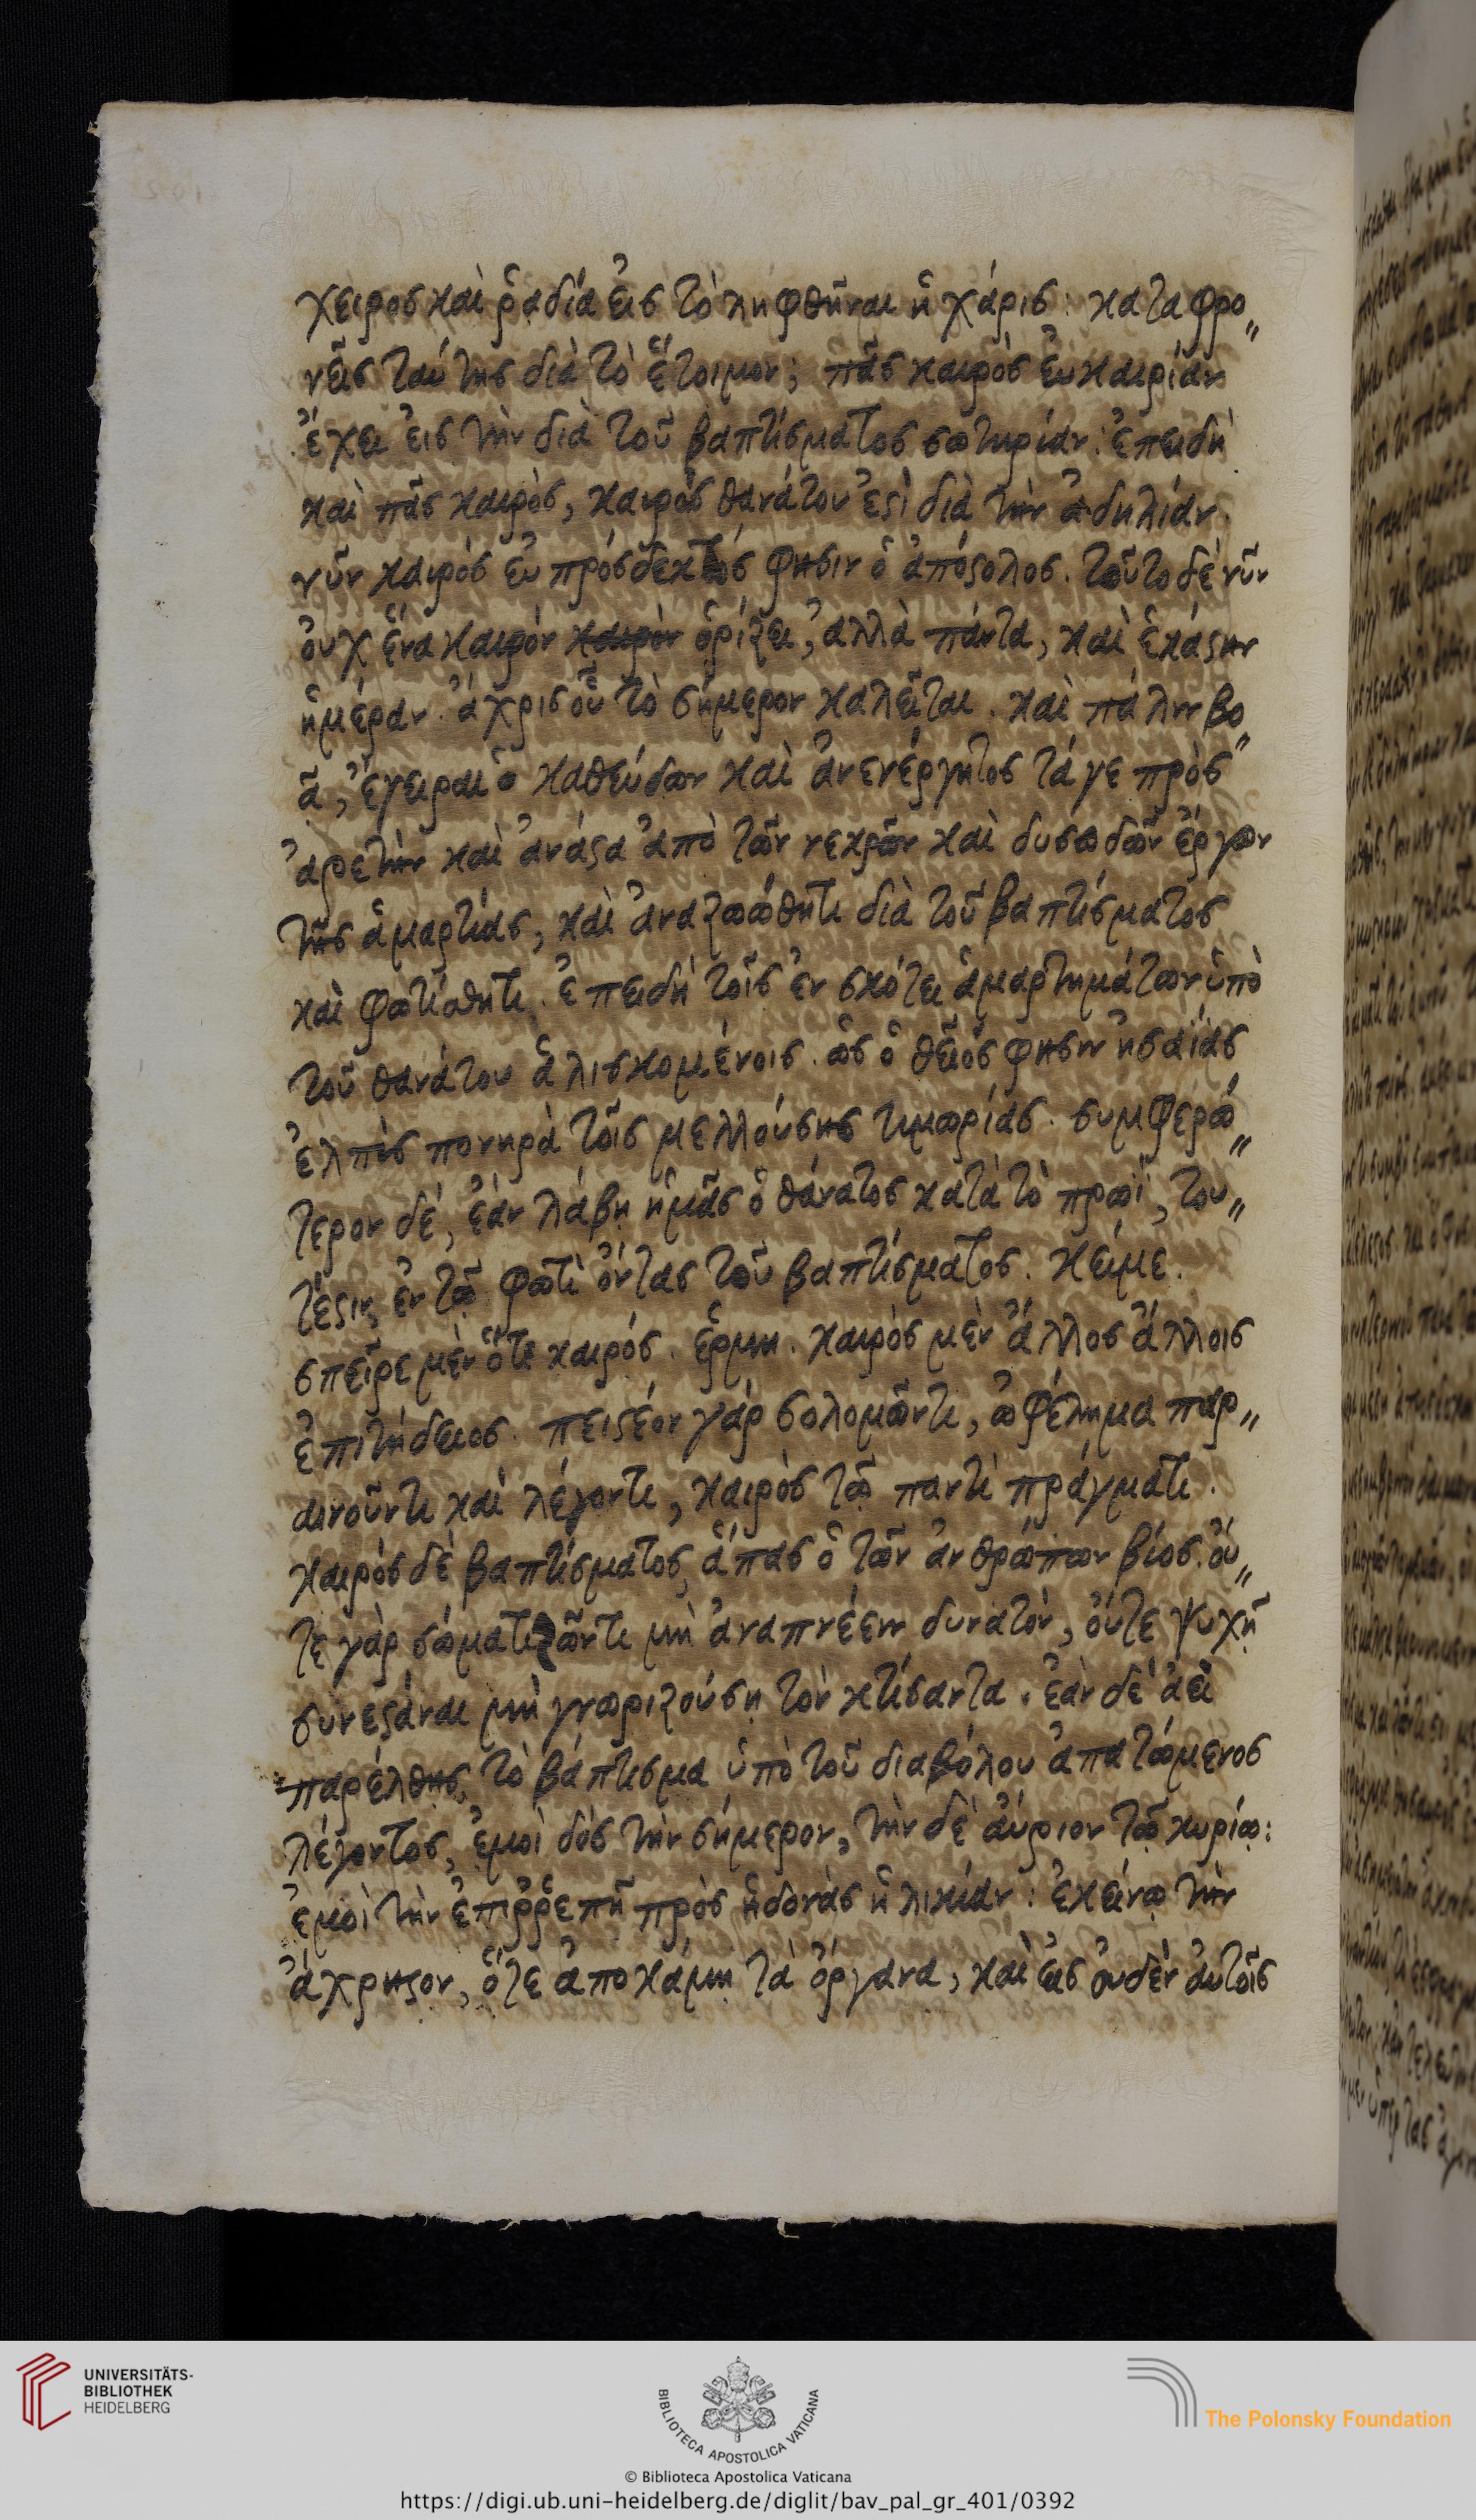 χειρος καὶ ῥαδία εἰς τὸ ληφθῆναι ἡ χάρις: καταφρο〃
νεῖς ταύτης διὰ τὸ ἕτοιμον; πᾶς καιρὸς εὐκαιρίαν
ἔχει εἰς τὴν διὰ τοῦ βαπτίσματος σωτηρίαν: ἐπειδὴ
καὶ πᾶς καιρὸς, καιρὸς θανάτου ἐϛὶ διὰ τὴν ἀδηλίαν.
νῦν καιρός εὐπρόσδεκτός φησιν ὁ ἀπόϛολος. τοῦτο δὲ νῦν
οὐχ ἕνα καιρόν καιρὸν ὁρίζει, ἀλλὰ πάντα, καὶ ἑκάϛην
ἡμέραν. ἄχρις οὗ τὸ σήμερον καλεῖται. καὶ πάλιν βο〃
ᾷ, ἔγειραι ὁ καθεύδων καὶ ἀνενέργητος τά γε πρὸς
ἀρετὴν καὶ ἀνάϛα ἀπὸ τῶν νεκρῶν καὶ δυσωδῶν ἔργων
τῆς ἁμαρτίας, καὶ ἀναζωώθητι διὰ τοῦ βαπτίσματος
καὶ φωτίσθητι. ἐπειδὴ τοῖς ἐν σκότει ἁμαρτημάτων ὑπὸ
τοῦ θανάτου ἁλισκομένοις. ὡς ὁ θεῖός φησιν ἡσαΐας
ἐλπὶς πονηρὰ τοῖς μελλούσης τιμωρίας. συμφερώ〃
τερον δέ, ἐὰν λάβῃ ἡμᾶς ὁ θάνατος κατὰ τὸ πρωῒ, του〃
τέϛιν ἐν τῷ φωτὶ ὄντας τοῦ βαπτίσματος. κείμε.
σπεῖρε μὲν ὅτε καιρός. ἑρμη. καιρὸς μὲν ἄλλος ἄλλοις
ἐπιτήδειος. πειϛέον γάρ σολομῶντι, ὠφέλημα παρ〃
αινοῦντι καὶ λέγοντι, καιρὸς τῷ παντὶ πράγματι.
καιρὸς δὲ βαπτίσματος, ἅπας ὁ τῶν ἀνθρώπων βίος. οὔ〃
τε γὰρ σώματι ζῶντι μὴ ἀναπνέειν δυνατὸν, οὔτε ψυχῇ
συνεϛάναι μὴ γνωριζούσῃ τὸν κτίσαντα. ἐὰν δὲ ἀεὶ
παρέλθῃς, τὸ βάπτισμα ὑπὸ τοῦ διαβόλου ἀπατώμενος
λέγοντος, ἐμοὶ δὸς τὴν σήμερον, τὴν δὲ αὔριον τῷ κυρίῳ:
ἐμοὶ τὴν ἐπιῤῥεπῆ πρὸς ἡδονὰς ἡλικίαν: ἐκείνῳ τὴν
ἄχρηϛον, ὅτε ἀποκάμῃ τὰ ὄργανα, καὶ εἰς οὐδὲν αὐτοῖς
UNIVERSITÄTS-
BIBLIOTHEK
HEIDELBERG
BIBLIOTECA APOSTOLICA VATICANA
The Polonsky Foundation
© Biblioteca Apostolica Vaticana
https://digi.ub.uni-heidelberg.de/diglit/bav_pal_gr_401/0392